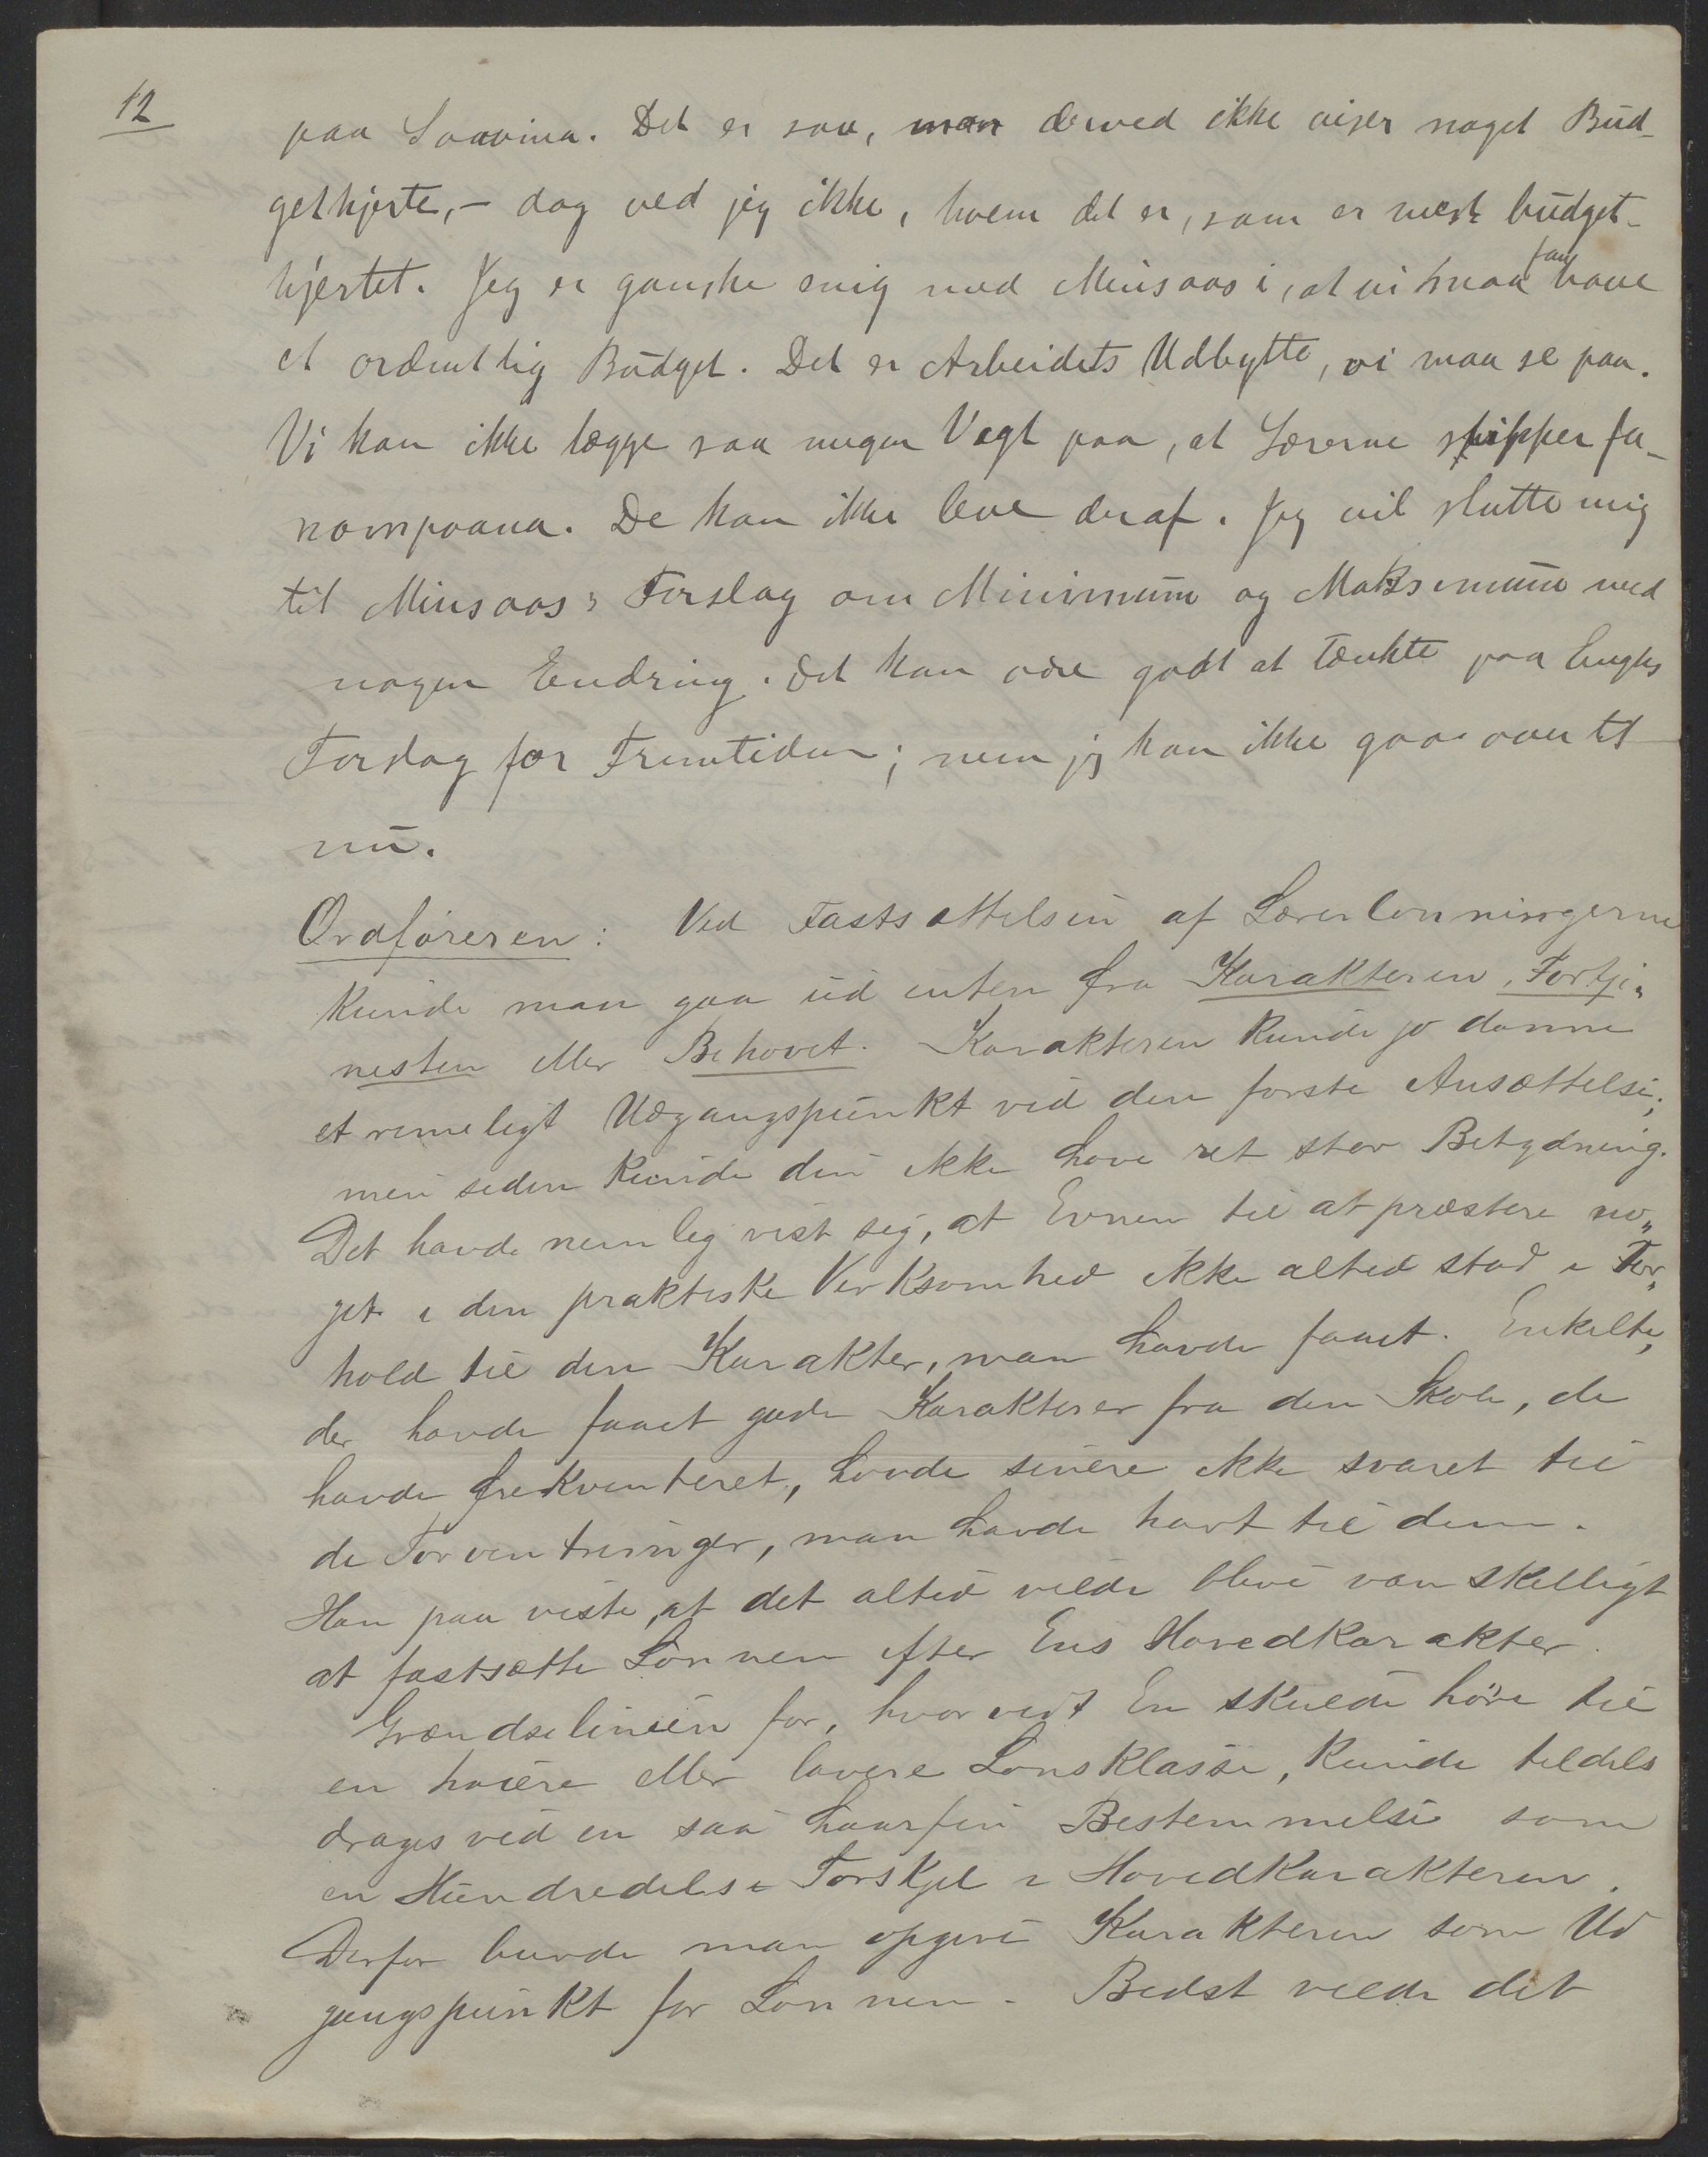 12
paa Soavina. Det er saa, man derved ikke viser noget Bud-
gethjerte, – dog ved jeg ikke, hvem det er, som er mest budget-
hjertet. Jeg er ganske enig med Minsaas i, at vi maa faa have
et ordentlig Budget. Det er Arbeidets Udbytte, vi maa se paa.
Vi kan ikke lægge saa megen Vegt paa, at Lærerne slipper fa-
nompoana. De kan ikke leve deraf. Jeg vil slutte mig
til Minsaas's Forslag om Minimum og Maksimum med
nogen Endring. Det kan være godt at tænkte paa Enghs
Forslag for Fremtiden; men jeg kan ikke gaa over til
nu.
Ordføreren: Ved Fastsættelsen af Lærerlønningerne
kunde man gaa ud enten fra Karakteren, Fortje-
nesten eller Behovet. Karakteren kunde jo danne
et rimeligt Udgangspunkt ved den første Ansættelse;
men siden kunde den ikke have ret stor Betydning.
Det havde nemlig vist sig, at Evnen til at præstere no-
get i den praktiske Virksomhed ikke altid stod i For-
hold til den Karakter, man havde faaet. Enkelte,
der havde faaet gode Karakterer fra den Skole, de
havde frekventeret, havde senere ikke svaret til
de Forventninger, man havde havt til dem.
Han paaviste, at det altid vilde blive vanskelligt
at fastsætte Lønnen efter Ens Hovedkarakter.
Grændselinien for, hvorvidt En skulde høre til
en høiere eller lavere Lønsklasse, kunde tildels
drages ved en saa haarfin Bestemmelse som
en Hundredels Forskjel i Hovedkarakteren.
Derfor burde man opgive Karakteren som Ud
gangspunkt for Lønnen. Bedst vilde det